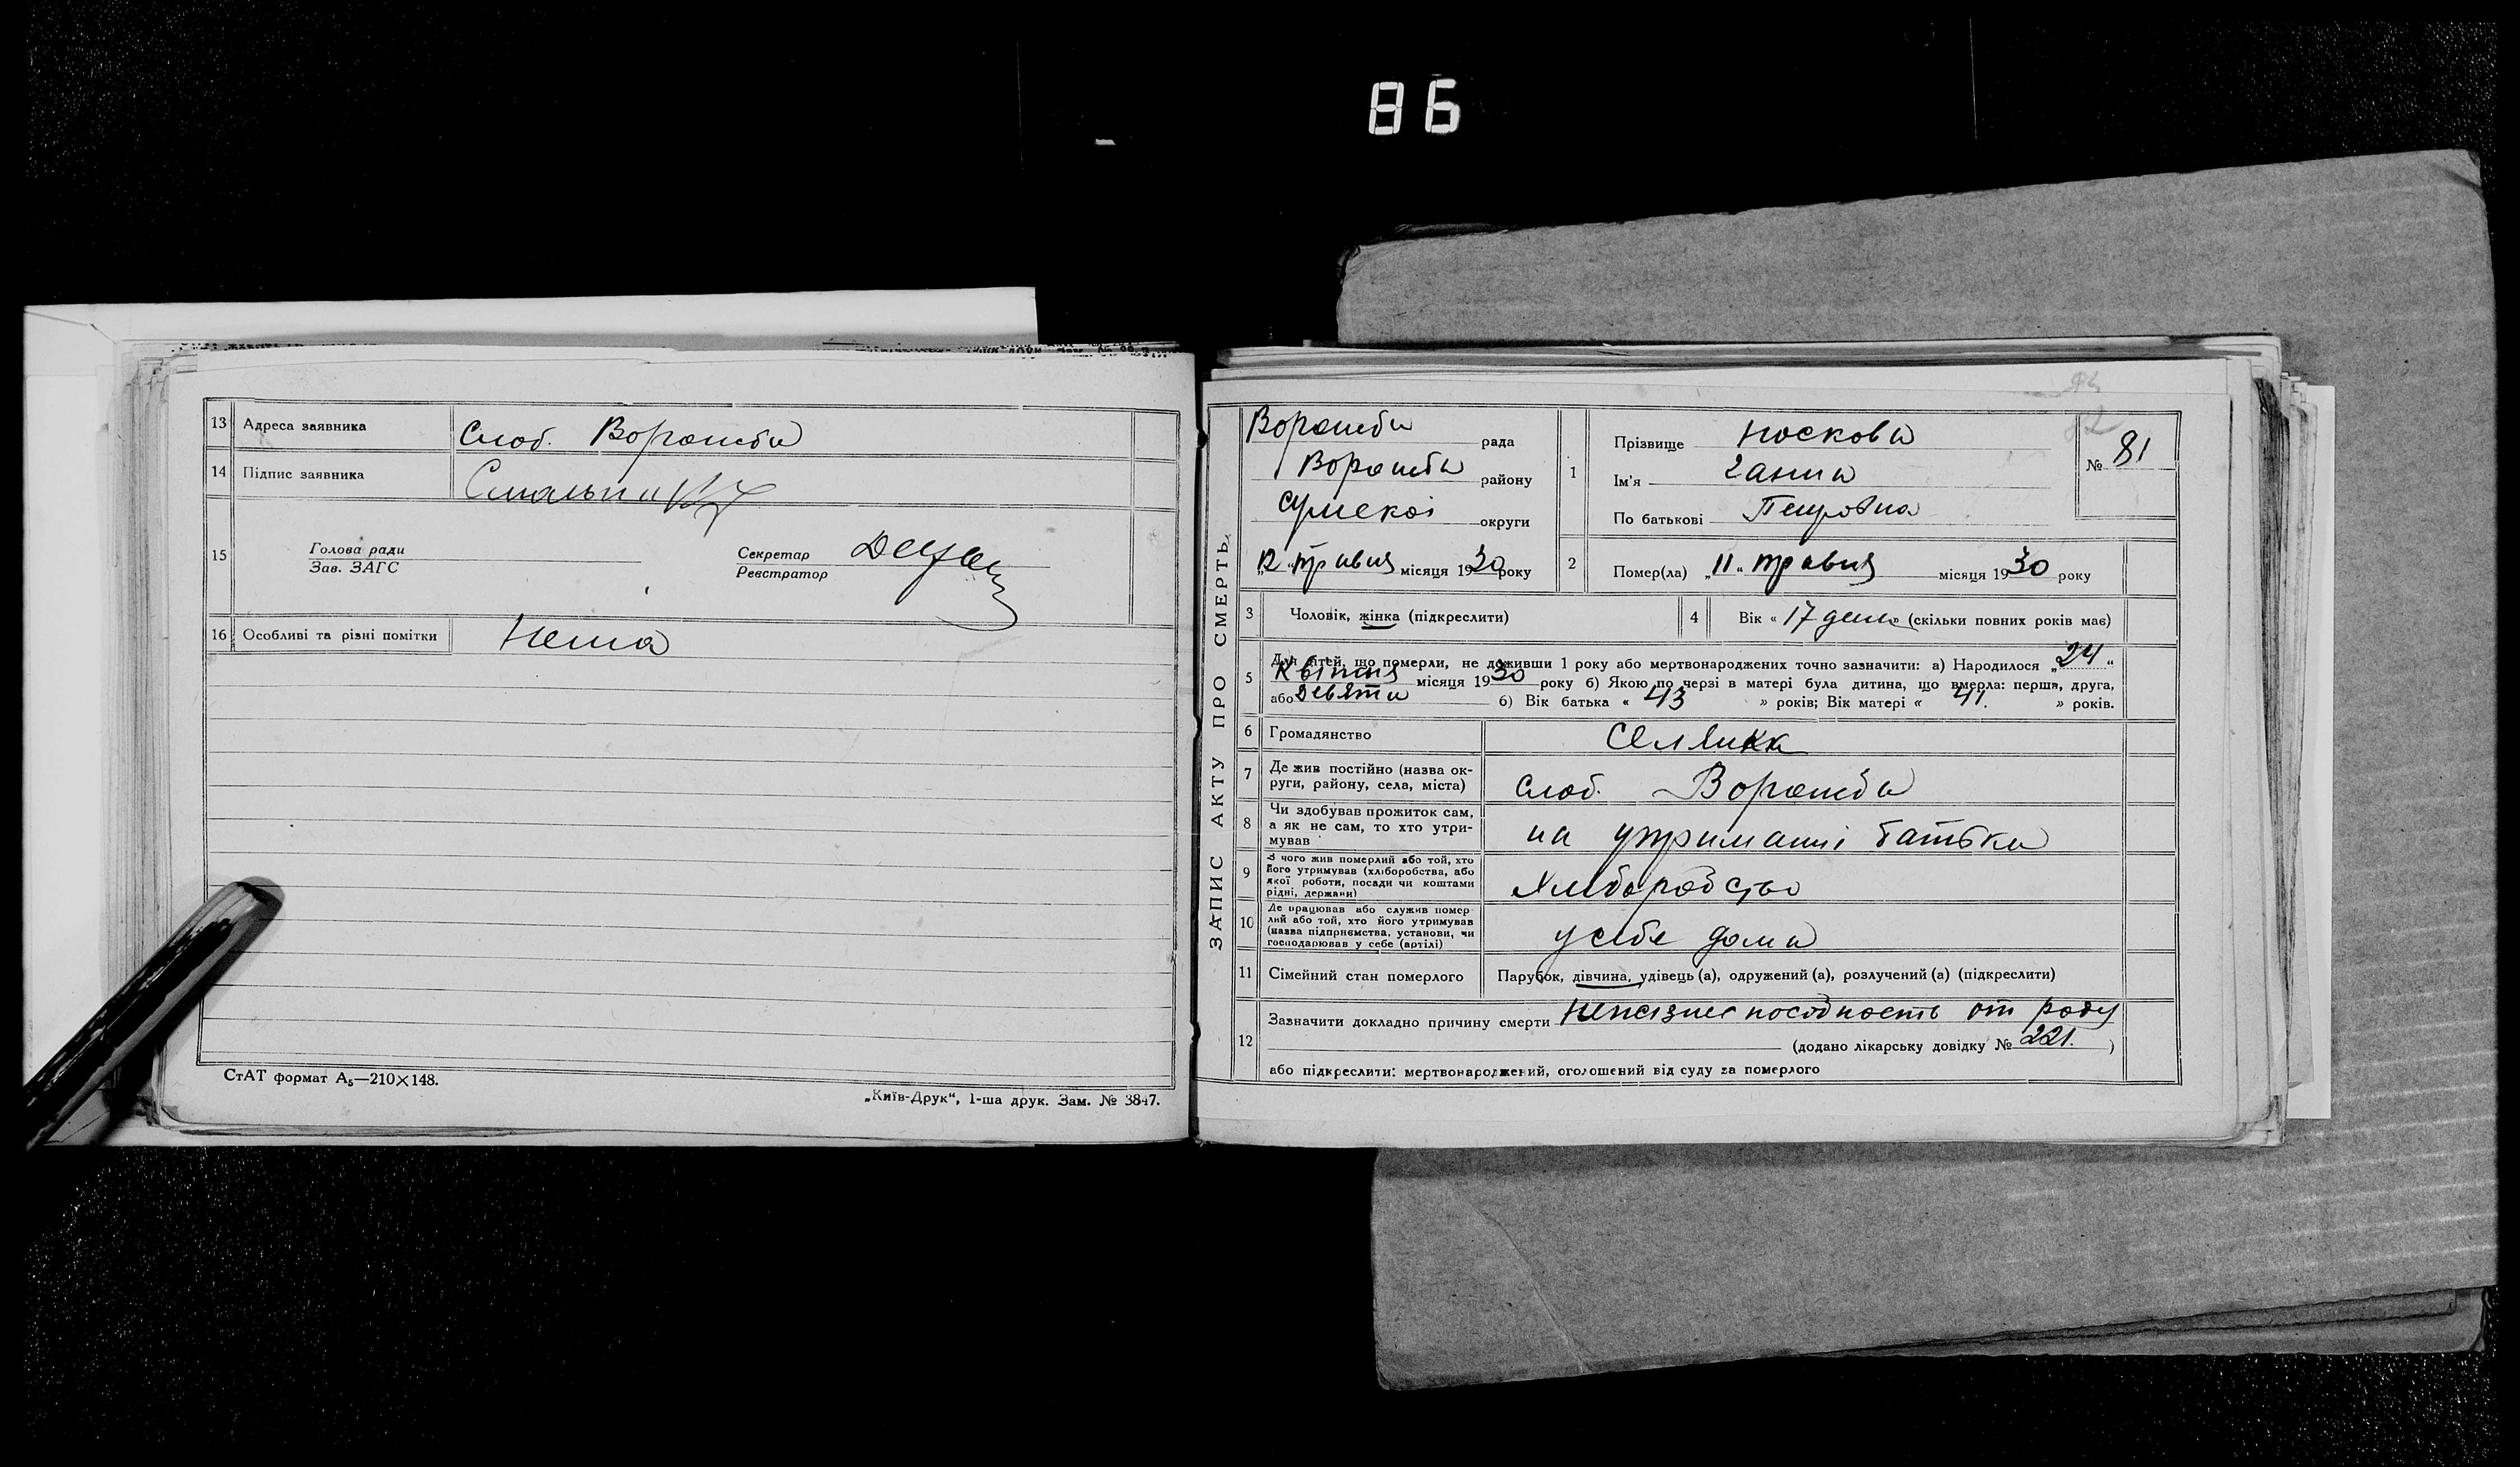 86
13 Адреса заявника Слоб. Ворожба
14 Підпис заявника
15 Голова ради Секретар
Зав. ЗАГС Реєстратор
16 Особливі та різні помітки Нема
СтАТ формат А5—210×148.
„Київ-Друк“, 1-ша друк. Зам. № 3847.
ЗАПИС АКТУ ПРО СМЕРТЬ
Ворожба рада
Ворожба району
Сумскоі округи
„12“ травня місяця 1930 року
1 Прізвище Носкова
Ім'я Ганна
По батькові Петровна
№ 81
2 Помер(ла) „11“ травня місяця 1930 року
3 Чоловік, жінка (підкреслити)
4 Вік «17 день» (скільки повних років має)
5 Для дітей, що померли, не доживши 1 року або мертвонароджених точно зазначити: а) Народилося „24“
Квітня місяця 1930 року б) Якою по черзі в матері була дитина, що вмерла: перша, друга,
або девята б) Вік батька « 43 » років; Вік матері « 41. » років.
6 Громадянство Селянка
7 Де жив постійно (назва ок-
руги, району, села, міста) Слоб. Ворожба
8 Чи здобував прожиток сам,
а як не сам, то хто утри-
мував на утриманні батька
9 З чого жив померлий або той, хто
його утримував (хліборобства, або
якої роботи, посади чи коштами
рідні, держави) Хліборобство
10 Де працював або служив помер
лий або той, хто його утримував
(назва підприємства, установи, чи
господарював у себе (артілі) у себе дома
11 Сімейний стан померлого Парубок, дівчина, удівець (а), одружений (а), розлучений (а) (підкреслити)
12 Зазначити докладно причину смерти от роду
(додано лікарську довідку № 221. )
або підкреслити: мертвонароджений, оголошений від суду за померлого